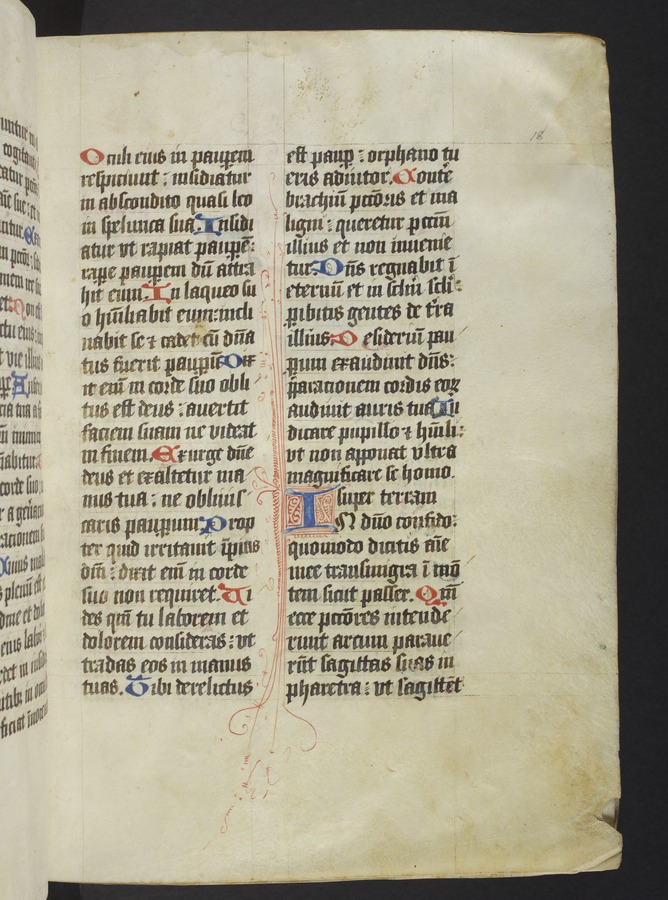 18
Oculi eius in pauperem
respiciunt : insidiatur
in abscondito quasi leo
in spelunca sua. Insidi
atur vt rapiat paupe͞:
rape pauperem du͞ attra
hit eum. In laqueo su
o hu͞iliabit eum: incli
nabit se ⁊ cadet cu͞ d͞na
tus fuerit paup͞u͞ Dix
it em͞ in corde suo obli
tus est deus : auertit
faciem suam ne videat
in finem. Exurge d͞ne
deus et exaltetur ma
nus tua : ne obliuis
caris pauperum: Prop
ter quid irritauit i͞pius
d͞m : dixit em͞ in corde
suo non requiret. Vi
des qm͞ tu laborem et
dolorem consideras : vt
tradas eos in manus
tuas. Tibi derelictus
est paup : orphano tu
eris adiutor. Conte
brachiu͞ p͞cc͞oris et ma
ligni : queretur p͞cc͞m
illius et non inuenie
tur. D͞ns regnabit i͞
eternu͞ et in sc͞lm sc͞li :
p͞ibitis gentes de t͞ra
illius: Desideriu͞ pau
p͞um exaudiuit d͞ns:
p͞paracionem cordis eoꝝ
audiuit auris tua Iu
dicare pupillo ⁊ hu͞ili :
vt non apponat vltra
magnificare se homo.
super terram
IN d͞no confido:
quomodo dicitis a͞ie
mee transmigra i͞ mo͞
tem sicut passer. Qm͞
ecce p͞cc͞ores intende
runt arcum paraue
ru͞t sagittas suas in
pharetra : vt sagitte͞t